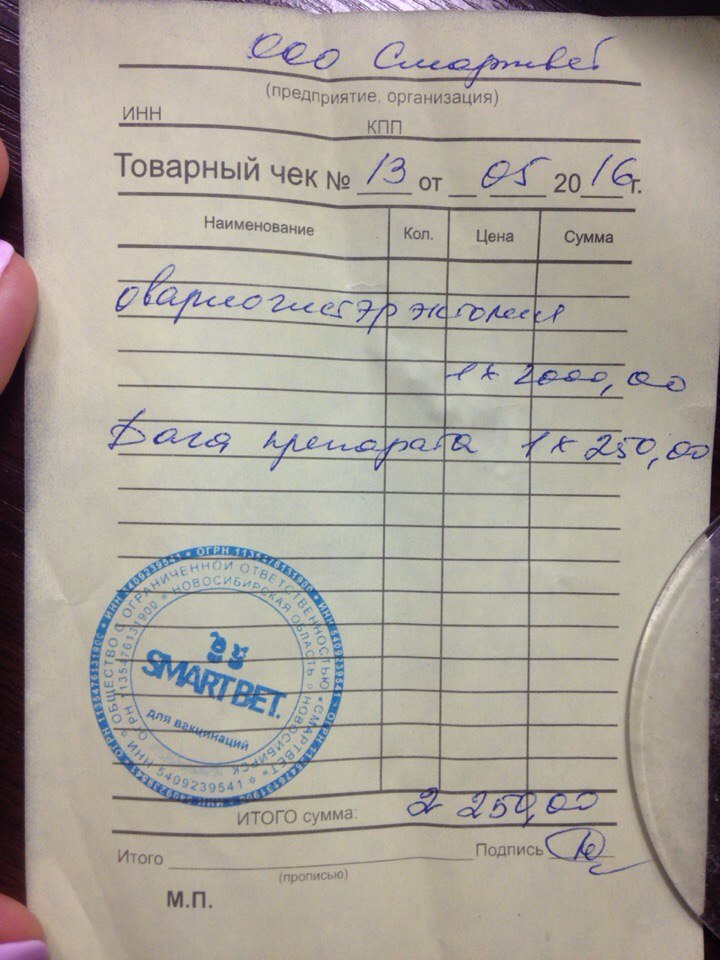 ООО Смартвет
(предприятие, организация)
ИНН
КПП
Товарный чек № 13 от 05 2016 г.
Наименование Кол. Цена Сумма
овариогистэрэктомия
1 х 2000,00
Дача препарата 1 х 250,00
ОГРН 1135476131900 * ИНН 5409239541 * ОГРН 1135476131900 * ИНН 5409239541
ОБЩЕСТВО С ОГРАНИЧЕННОЙ ОТВЕТСТВЕННОСТЬЮ «СМАРТВЕТ» * ИНН 5409239541 * ОГРН 1135476131900
НОВОСИБИРСКАЯ ОБЛАСТЬ * НОВОСИБИРСК
SMARTВЕТ.
для вакцинаций
ИТОГО сумма: 2 250,00
Итого Подпись
(прописью)
М.П.